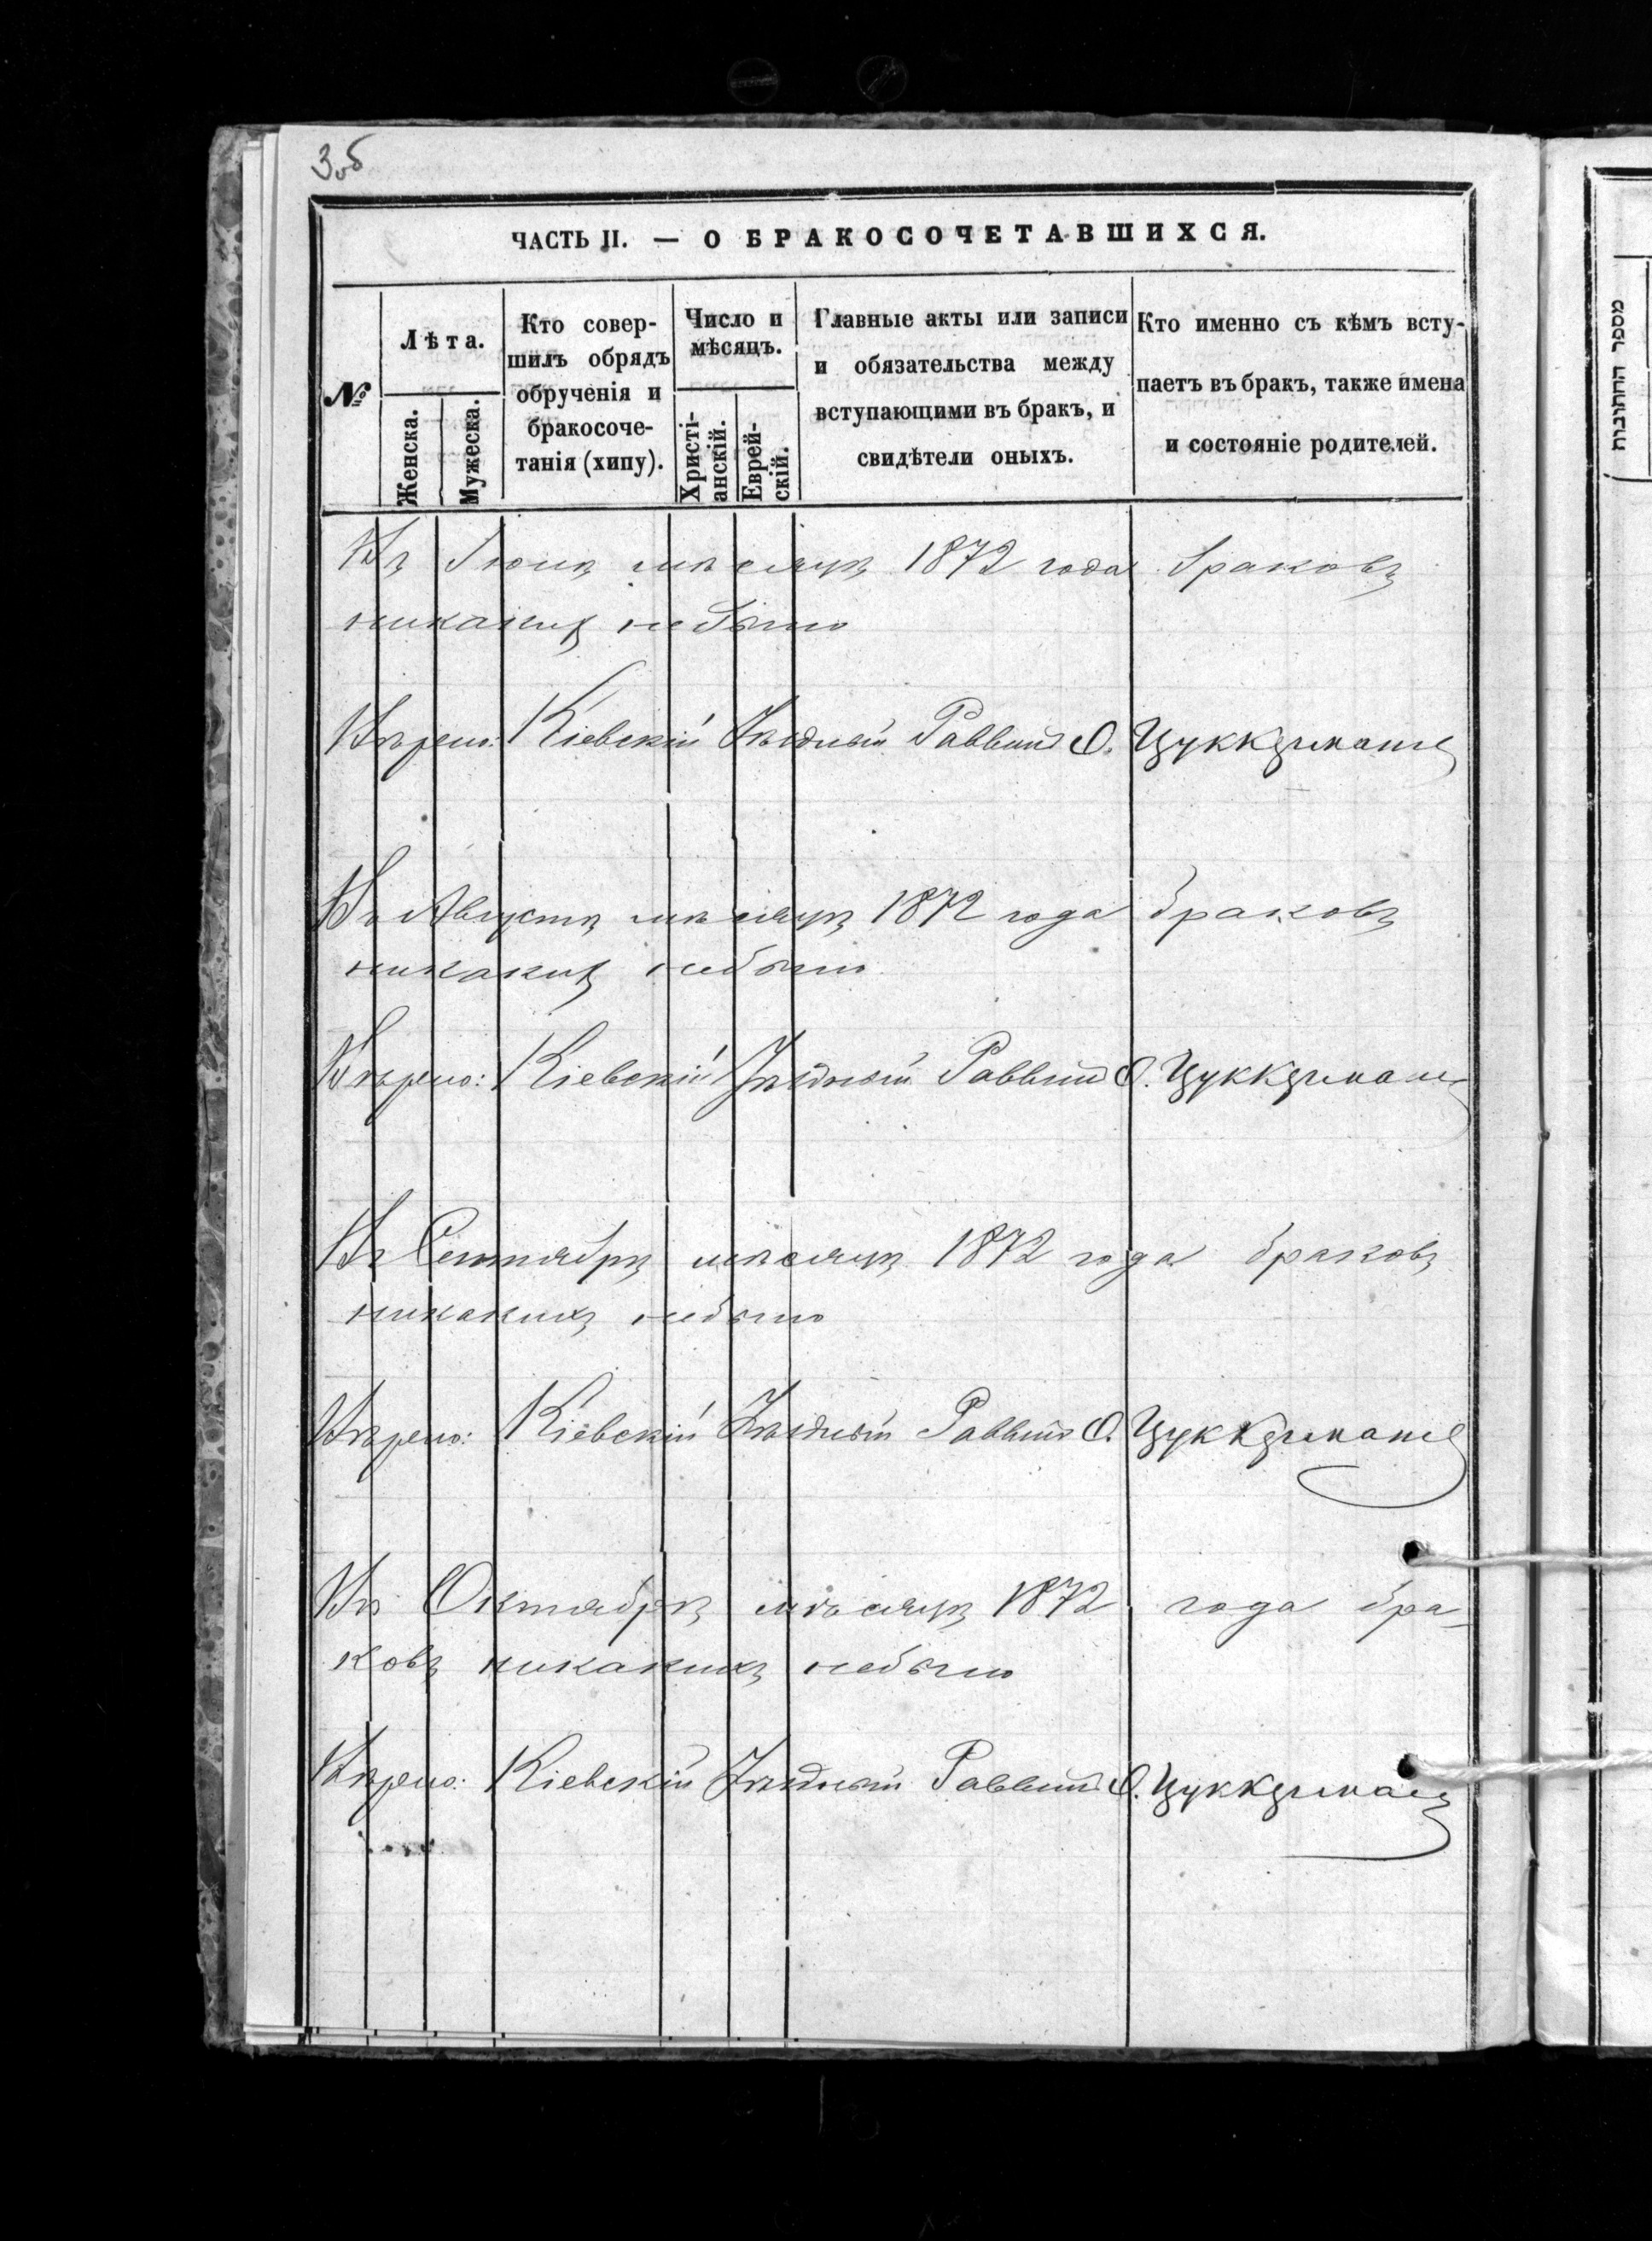 3об
ЧАСТЬ II. — О БРАКОСОЧЕТАВШИХСЯ.
№
Лѣта.
Женска.
Мужеска.
Кто совер-
шилъ обрядъ
обрученія и
бракосоче-
танія (хипу).
Число и
мѣсяцъ.
Христі-
анскій.
Еврей-
скій.
Главные акты или записи
и обязательства между
вступающими въ бракъ, и
свидѣтели оныхъ.
Кто именно съ кѣмъ всту-
паетъ въ бракъ, также имена
и состояніе родителей.
Въ Іюлѣ мѣсяцѣ 1872 года браковъ
никакихъ небыло
Вѣрно: Кіевскій Уѣздный Раввинъ О. Цуккерманъ
Въ Августѣ мѣсяцѣ 1872 года браковъ
никакихъ небыло
Вѣрно: Кіевскій Уѣздный Раввинъ О. Цуккерманъ
Въ Сентябрѣ мѣсяцѣ 1872 года браковъ
никакихъ небыло
Вѣрно: Кіевскій Уѣздный Раввинъ О. Цуккерманъ
Въ Октябрѣ мѣсяцѣ 1872 года бра-
ковъ никакихъ небыло
Вѣрно: Кіевскій Уѣздный Раввинъ О. Цуккерманъ
מספר החתונות